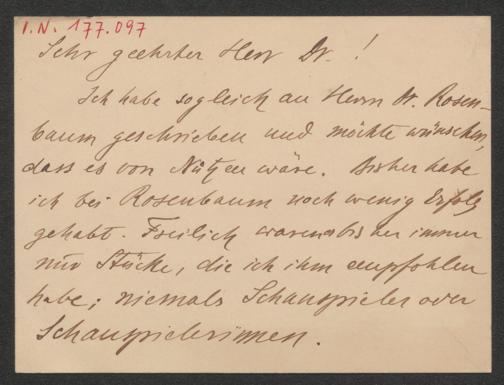 I.N. 177.097
Sehr geehrter Herr Dr.!
Ich habe sogleich an Herrn Dr. Rosen-
baum geschrieben und möchte wünschen,
dass es von Nutzen wäre. Bisher habe
ich bei Rosenbaum noch wenig Erfolg
gehabt. Freilich waren bisher immer
nur Stücke, die ich ihm empfohlen
habe; niemals Schauspieler oder
Schauspielerinnen.